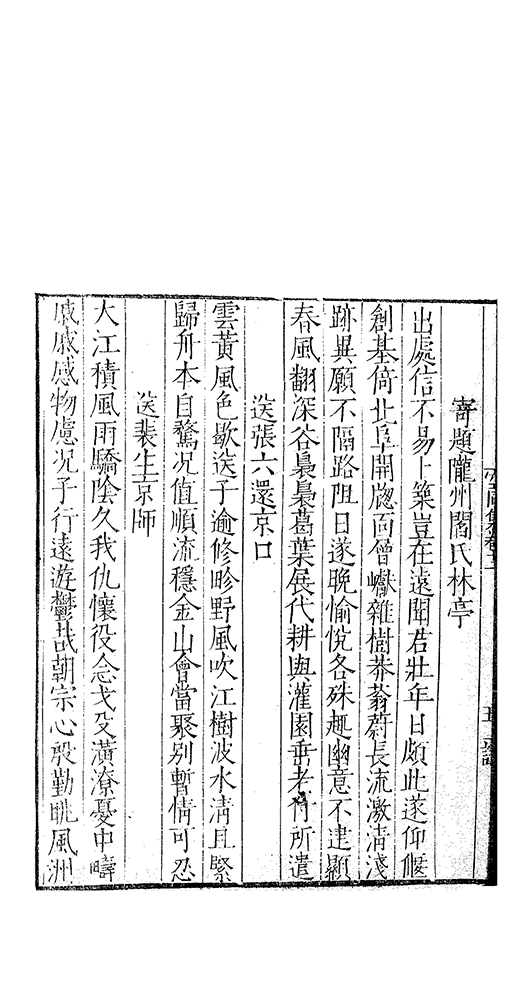 寄題隴州閻氏林亭
出處信不易卜築豈在遠聞君壯年日頗此遂仰偃
創基倚北阜開牕面層巘雜樹莽蓊蔚長流激清淺
跡異願不隔路阻日遂晚愉悅各殊趣幽意不違顯
春風翻深谷裊裊葛葉展代耕與灌園垂老符所遣
送張六還京口
雲黃風色歇送子逾修畛野風吹江樹波水清且緊
歸舟本自驚况值順流穩金山會當聚别暫情可忍
送裴生京師
大江積風雨驕陰久我仇懷役念戈殳潢潦憂中疇
戚戚感物慮况子行遠遊鬱哉朝宗心殷勤眺風洲